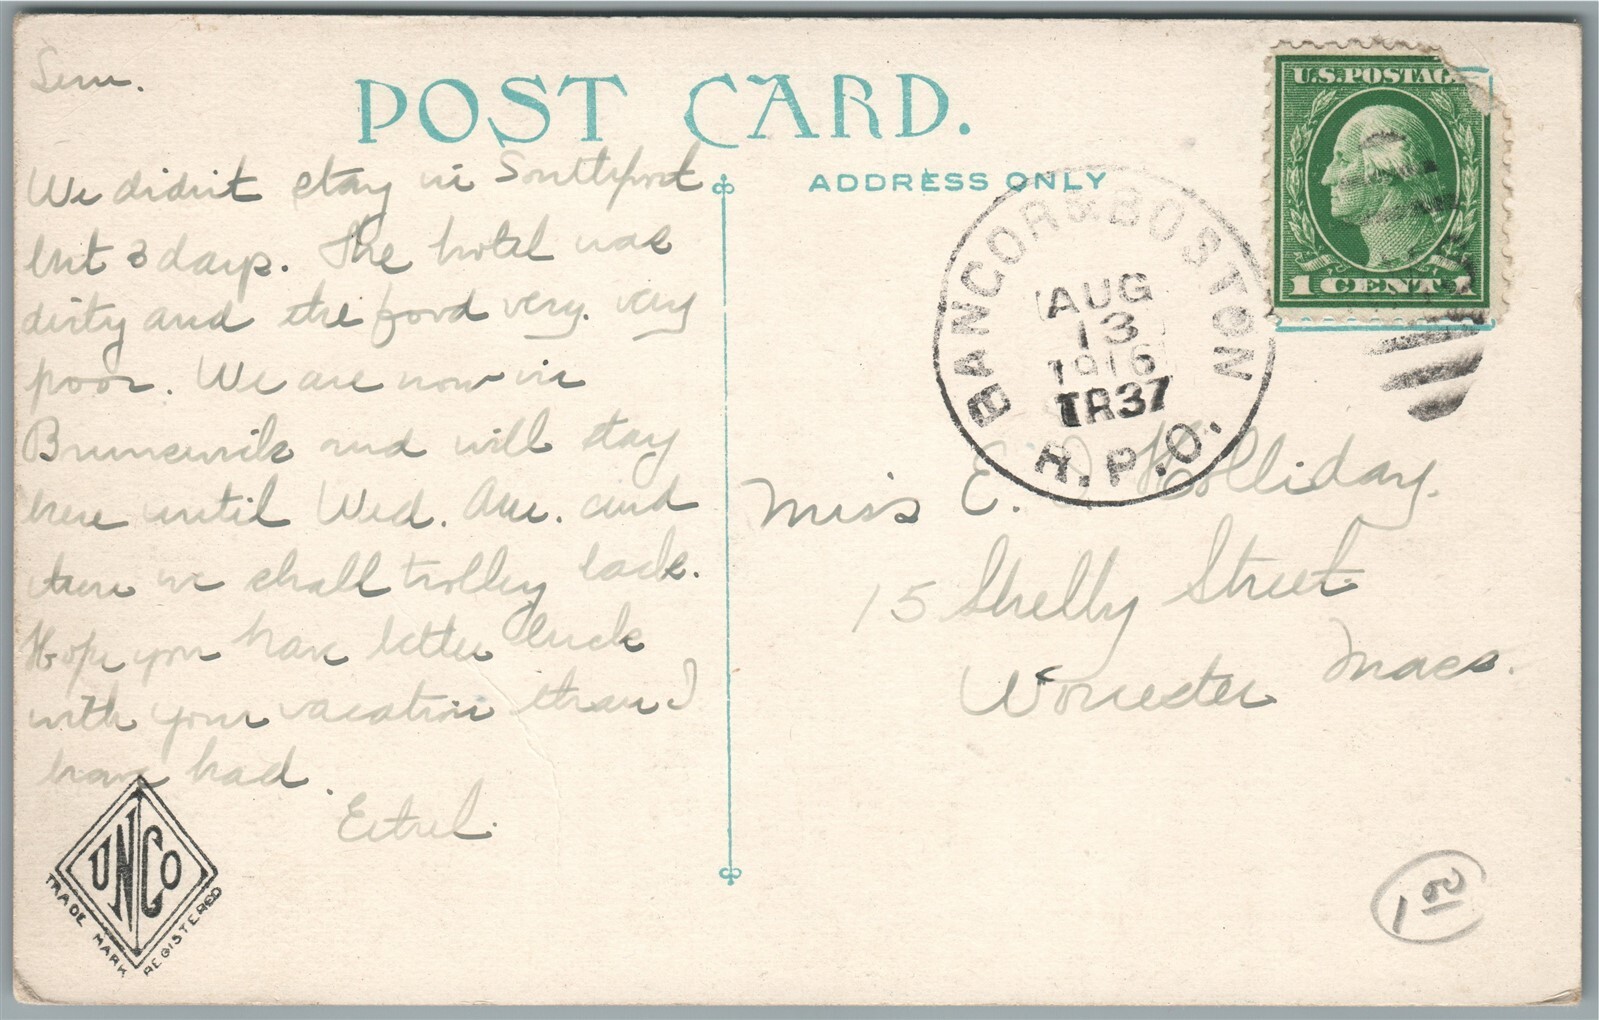 Sun.
We didn't stay in Southport
but 3 days. The hotel was
dirty and the food very. very
poor. We are now in
Brunswick and will stay
here until Wed. and
then we shall trolley back.
Hope you have better luck
with your vacation than I
have had.
Ethel.
UNCO
TRADE MARK REGISTERED
POST CARD.
ADDRESS ONLY
U.S. POSTAG
1 CENT 1
BANGOR & BOSTON
AUG
13
1916
TR37
R.P.O.
Miss E. Holliday.
15 Shelby Street
Worcester Mass.